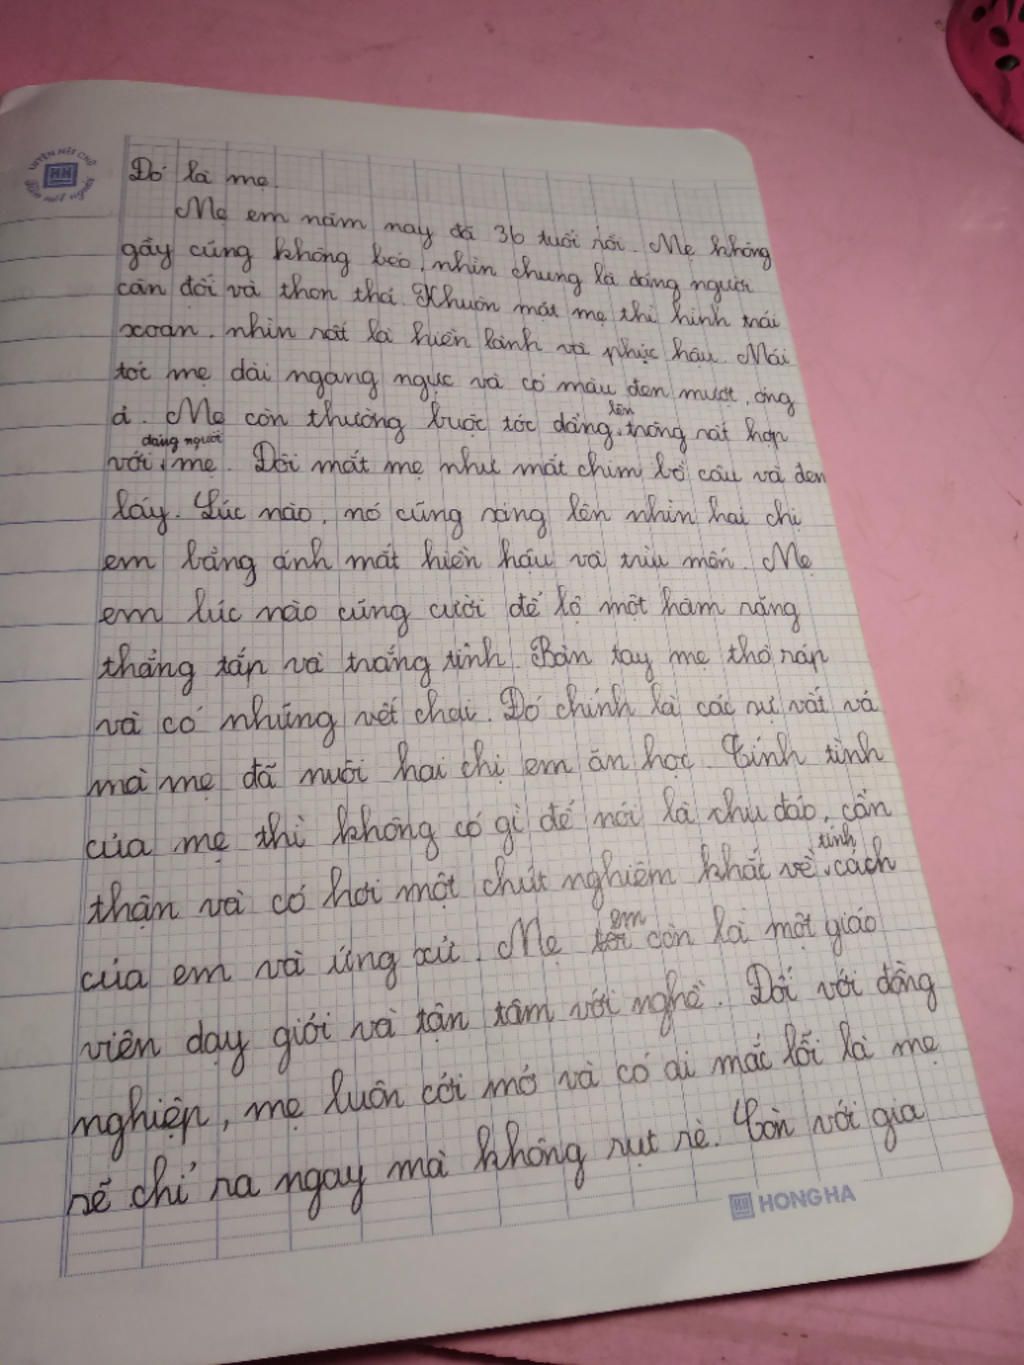 LUYỆN NÉT CHỮ
HH
RÈN NẾT NGƯỜI
Đó là mẹ.
Mẹ em năm nay đã 36 tuổi rồi. Mẹ không
gầy cũng không béo, nhìn chung là dáng người
cân đối và thon thả. Khuôn mặt mẹ thì hình trái
xoan, nhìn rất là hiền lành và phúc hậu. Mái
tóc mẹ dài ngang ngực và có màu đen mượt, óng
ả. Mẹ còn thường buộc tóc đằng lên trông rất hợp
với dáng người mẹ. Đôi mắt mẹ như mắt chim bồ câu và đen
láy. Lúc nào, nó cũng sáng lên nhìn hai chị
em bằng ánh mắt hiền hậu và trìu mến. Mẹ
em lúc nào cũng cười để lộ một hàm răng
thẳng tắp và trắng tinh. Bàn tay mẹ thô ráp
và có những vết chai. Đó chính là các sự vất vả
mà mẹ đã nuôi hai chị em ăn học. Tính tình
của mẹ thì không có gì để nói là chu đáo, cẩn
thận và có hơi một chút nghiêm khắc về tính cách
của em và ứng xử. Mẹ em còn là một giáo
viên dạy giỏi và tận tâm với nghề. Đối với đồng
nghiệp, mẹ luôn cởi mở và có ai mắc lỗi là mẹ
sẽ chỉ ra ngay mà không rụt rè. Còn với gia
HH HONG HA